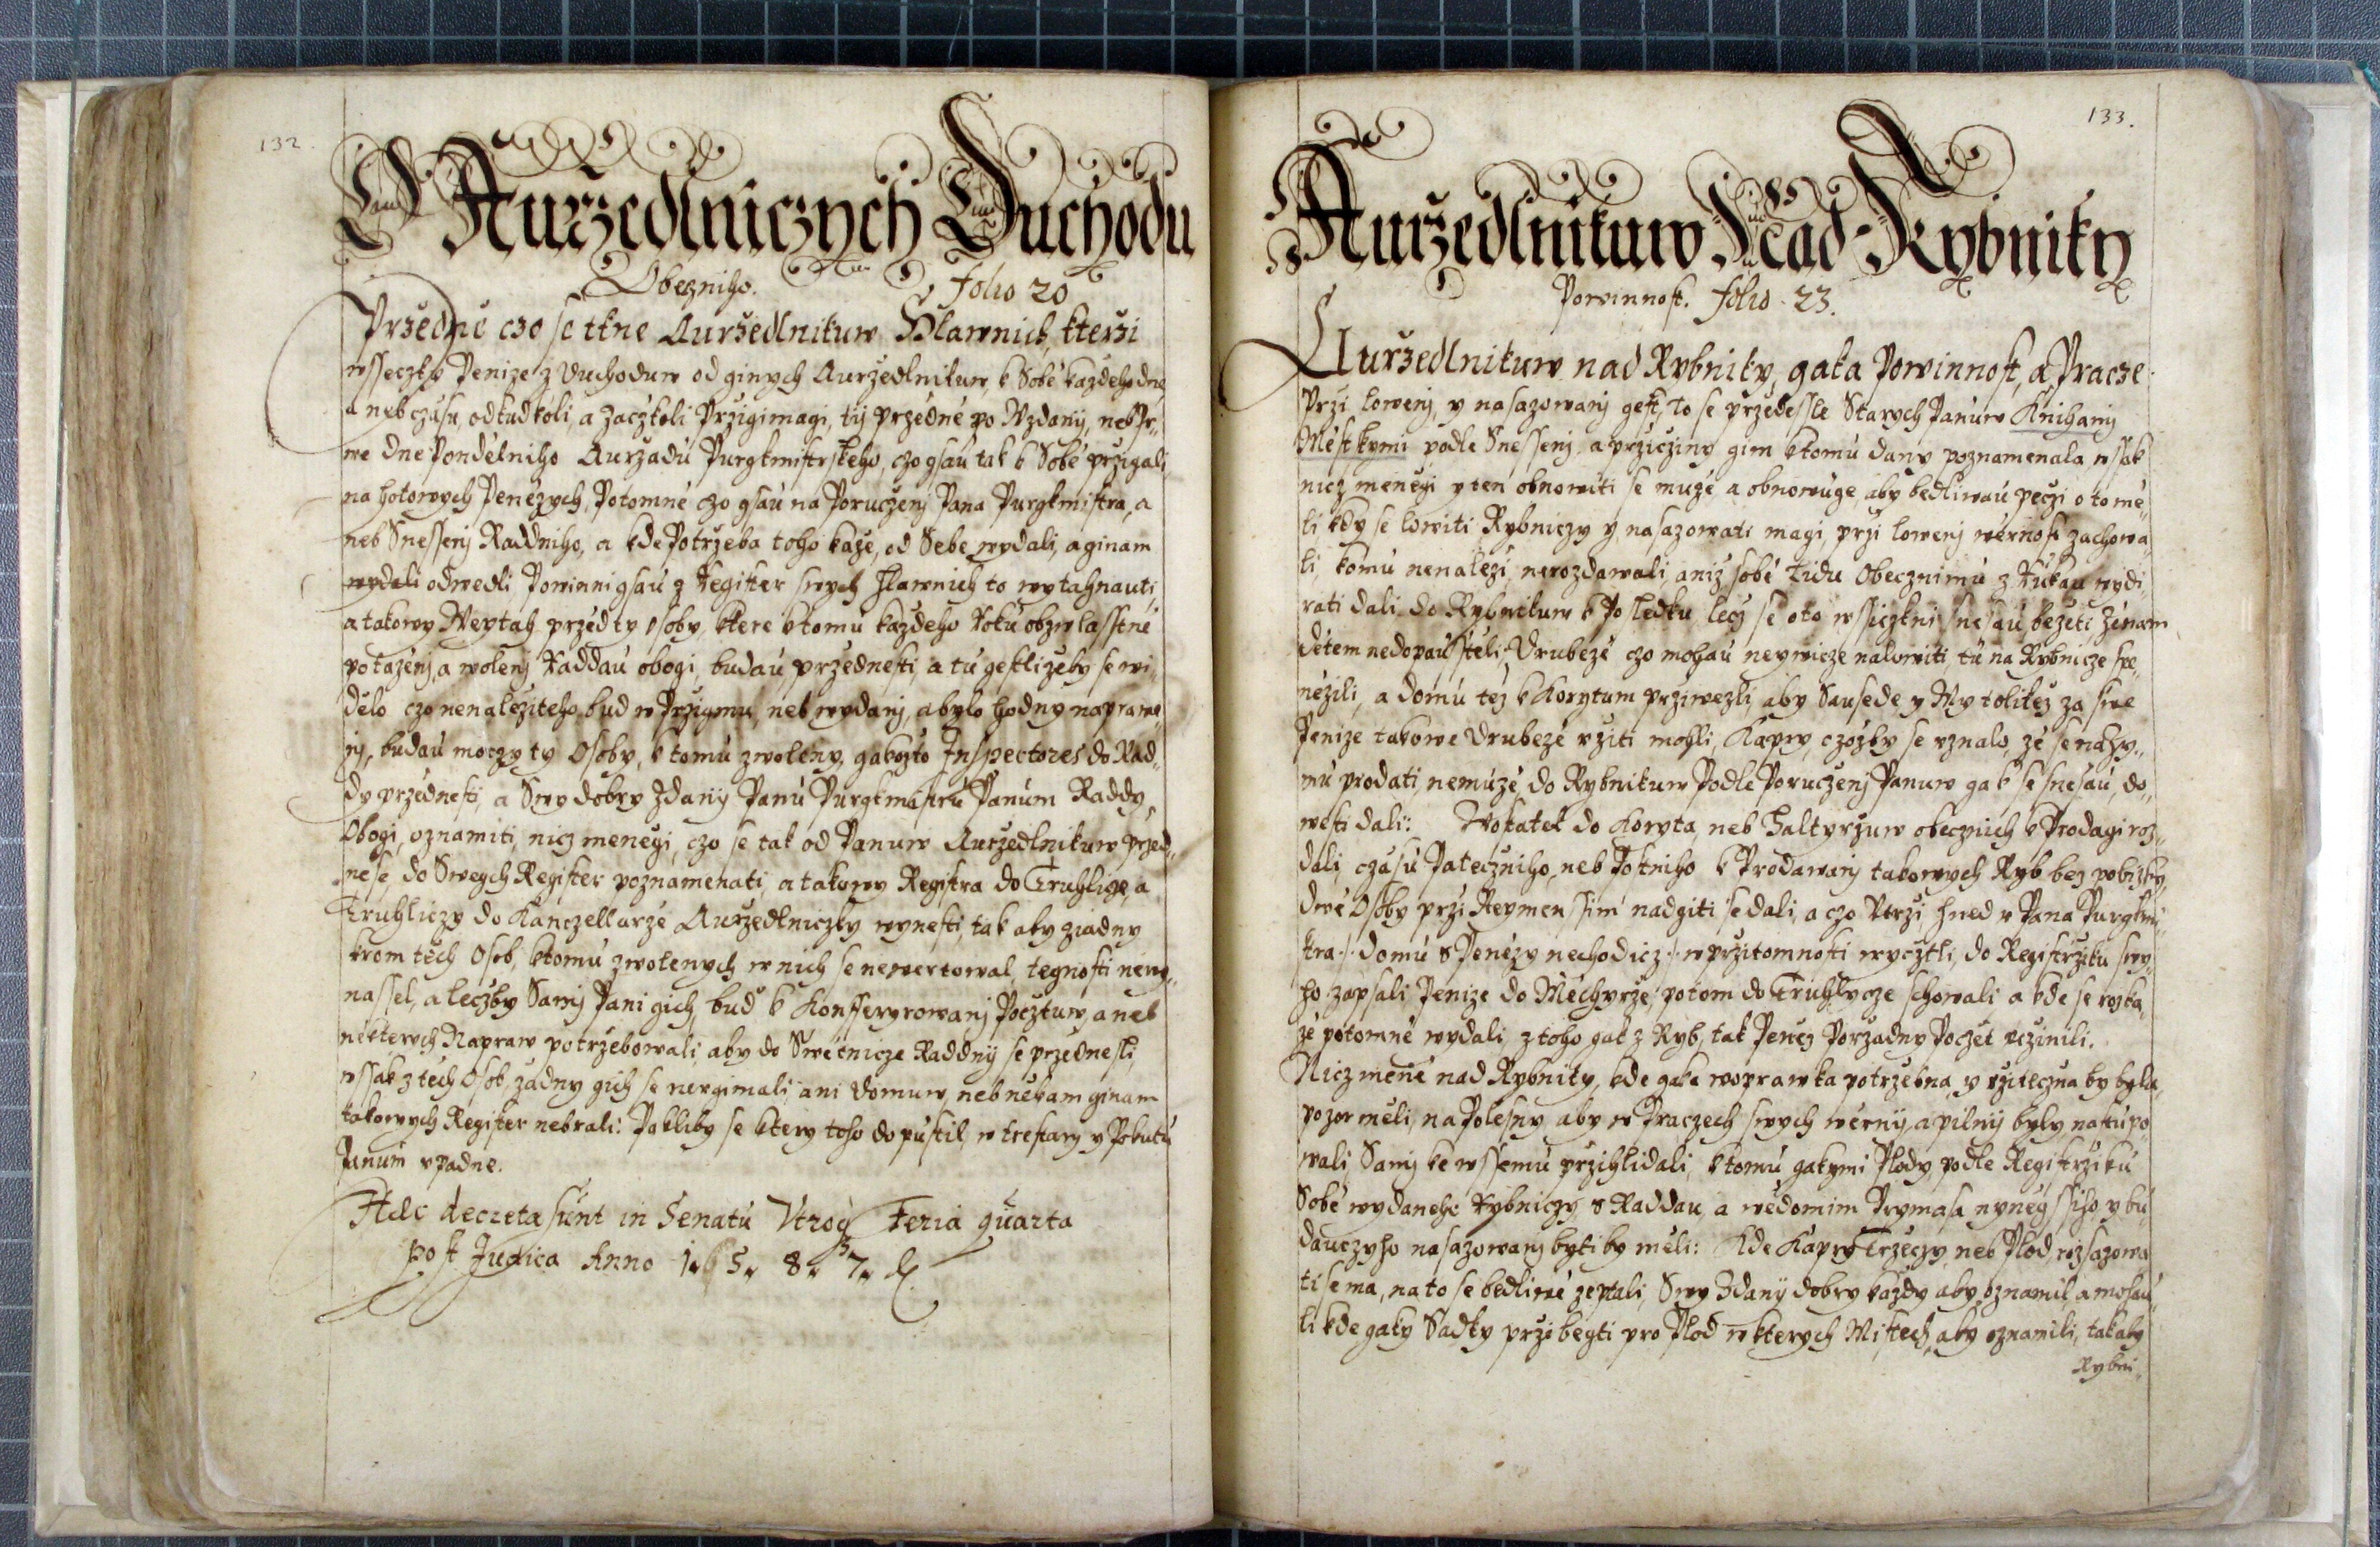 132.
O Aurzedlniczych Duchodu
Obezniho. Folio 20
Przedne czo se tkne Aurzedlnikuw Hlawnich, kterzi
wsseczky Penize z Duchoduw od ginych Aurzedlnikuw, k Sobě kazdeho dne
a neb czasu, odkudkoli, a zaczkoli Przigimagi, tij przedne po Wzdanij, neb Pr„
we dne Pondelniho Aurzadu Purgkmistrskeho, czo gsau tak k Sobě przigali
na hotowych Penezych, Potomne czo gsau na Poruczenj Pana Purgkmistra, a
neb Snessenj Raddniho, a kde Potrzeba toho kaze, od Sebe wydali, a ginam
wydali odwedli Powinni gsau z Register swych hlawnich to wytahnauti,
a takowy Weytah przed ty osoby, ktere ktomu kazdeho Roku obzwlasstne
potazenj, a wolenj Raddau obogi, budau, przednesti, a tu gestlizeby se wi„
delo czo nenaleziteho bud w Przigmu, neb wydanj, a bylo hodny naprawe„
nj, budau moczy ty Osoby, k tomu zwoleny, gakozto Inspectores do Rad„
dy przednesti, a Swy dobry Zdanij Panu Purgkmistru Panum Raddy
Obogi, oznamiti, nicz menegi, czo se tak od Panuw Aurzedlnikuw przed„
nese, do Swegch Register poznamenati, a takowy Registra do Truhlicze, a
Truhliczy do Kanczellarze Aurzedlniczky wynesti, tak aby ziadny
krom tech Osob, ktomu zwolenych w nich se newertowal, tegnosti newy„
nassel, a leczby Samj Pani gich, bud k Konfferyrowanj Pocztuw, a neb
nekterych Napraw potrzebowali, aby do Swetnicze Raddnij se przednesli,
wssak z tech Osob, zadny gich se nergimali, ani domuw, neb nekam ginam
takowych Register nebrali: Pakliby se ktery toho dopustil, w trestanj y Pokutu
Panum vpadne.
Haec decreta sunt in Senatu Vtroq3 Feria quarta
post Judica Anno 1. 5. 8. 7.
133.
Aurzedlnikuw Nad Rybniky
Powinnost. folio 23.
Aurzedlnikuw nad Rybniky, gaka Powinnost, a Pracze
Przi lowenj, y nasazowanj gest, to se przedessle Starych Panuw Knihamj
Mestkymi podle Snessenj, a przicziny gim ktomu dany poznamenala, wssak
nicz menegi y ten obnowiti se muze a obnowuge, aby bedliwau peczi o to me„
li, kdy se lowiti Rybniczy y nasazowati magi, przi lowenj wernost zachowa„
li, komu nenalezi, nerozdawali, aniz sobě Lidu Obecznimu z Rukau wydi„
rati dali, do Rybnikuw k Posledku, lecz se oto wssiczkni snesau, bezeti zenam
detem nedopausteli, Drubeze czo mohau neywicze naloviti, tu na Rybnicze spe„
nezili, a domu tez k Korytum przivezli, aby Sausede y My tolikez za swe
Penize takowe Drubeze vziti mohli, Kapry, czozby se vznalo, ze se nahy„
mu prodati nemuze, do Rybnikuw Podle Poruczenj Panuw gak se snesau, do„
westi dali: Wokatek do Koryta, neb Haltyrzuw obecznich k Prodagi roz„
dali, czasu Pateczniho, neb Postniho k Prodawanj takowych Ryb bez pobizky,
dwe Osoby przi Reymenssim nadgiti se dali, a czo Vtrzi, hned v Pana Purgkmi„
stra /: domu s Penezy nechodicz :/ w przitomnosti wycztli, do Registrziku swy„
ho zapsali, Penize do Mechyrze, potom do Truhlycze schowali a kde se rozka„
ze potomne wydali, z toho gak z Ryb, tak Penez Porzadny Poczet vczinili.
Nicz mene nad Rybniky, kde gaka woprawka potrzebna, y vziteczna by byla,
pozor meli, na Polesny aby w Praczech swych wernij a pilnij byly, nastupo„
wali, Samj ke wssemu przihlidali, ktomu gakymi Plody, podle Registrziku
Sobě wydaneho Rybniczy s Raddau, a wedomim Prymasa nynegssiho, y bu„
dauczyho nasazowanj byti by meli: Kde Kapry Trzeczy, neb Plod, rozsazowa„
ti se ma, na to se bedliwe zeptali, Swy Zdanij dobry kazdy aby oznamil, a mohau„
li kde gaky Sadky przibegti pro Plod w kterych Mistech, aby oznamili, tak aby
Rybni„